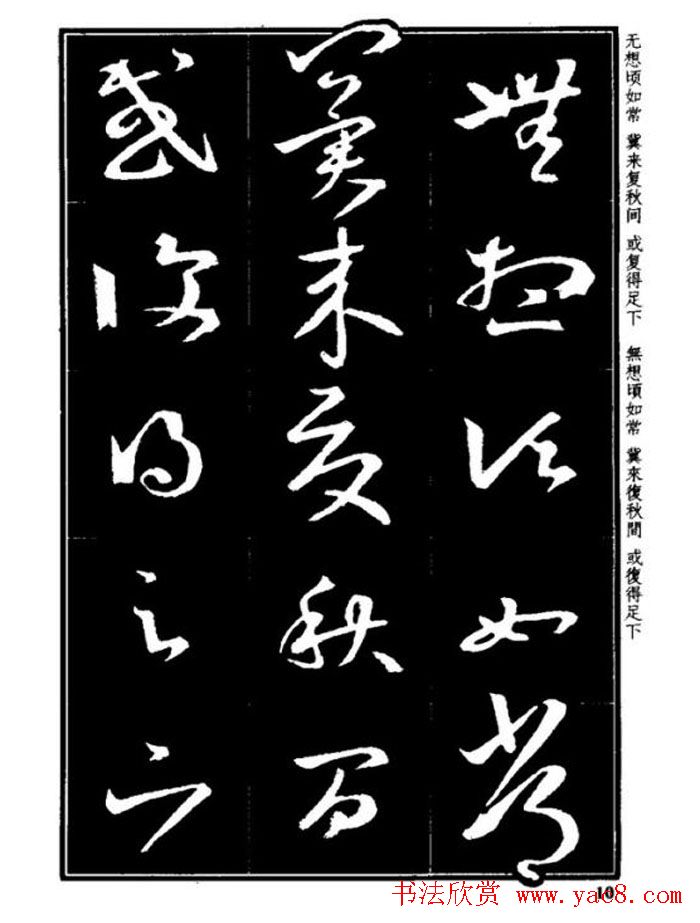 無想頃如常
冀来復秋間
或復得足下
无想顷如常 冀来复秋间 或复得足下 無想頃如常 冀來復秋間 或復得足下
10
书法欣赏 www.ya8.com